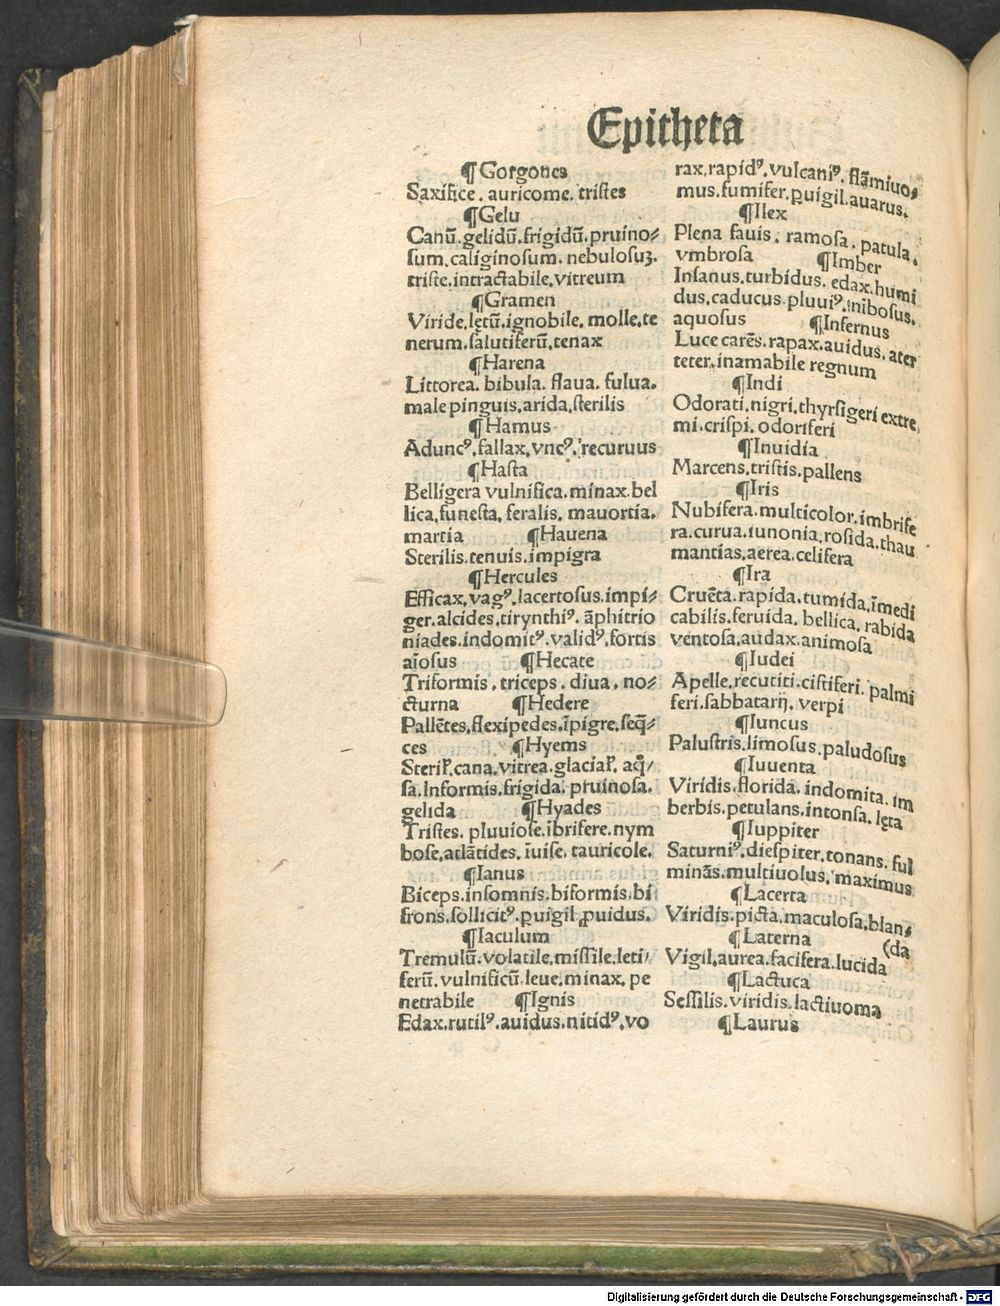 Epitheta
¶Gorgones
Saxifice. auricome. tristes
¶Gelu
Canū. gelidū. frigidū. pruino⸗
sum. caliginosum. nebulosuꝫ.
triste. intractabile. vitreum
¶Gramen
Viride. lętū. ignobile. molle. te
nerum. salutiferū. tenax
¶Harena
Littorea. bibula. flaua. fulua.
male pinguis. arida. sterilis
¶Hamus
Aduncꝰ. fallax. vncꝰ. recuruus
¶Hasta
Belligera vulnifica. minax. bel
lica. funesta. feralis. mauortia.
martia ¶Hauena
Sterilis. tenuis. impigra
¶Hercules
Efficax. vagꝰ. lacertosus. impi⸗
ger. alcides. tirynthiꝰ. āphitrio
niades. indomitꝰ. validꝰ. fortis
aīosus ¶Hecate
Triformis. triceps. diua. no⸗
cturna ¶Hedere
Pallētes. flexipedes. īpigre. seq̄⸗
ces ¶Hyems
Sterił. cana. vitrea. glaciał. aq̄⸗
sa. Informis. frigida. pruinosa.
gelida ¶Hyades
Tristes. pluuiose. ībrifere. nym
bose. atlātides. īuise. tauricole.
¶Ianus
Biceps. insomnis. biformis. bi
frons. sollicitꝰ. ꝑuigil. ꝓuidus.
¶Iaculum
Tremulū. volatile. missile. leti⸗
ferū. vulnificū. leue. minax. pe
netrabile ¶Ignis
Edax. rutilꝰ. auidus. nitidꝰ. vo
rax. rapidꝰ. vulcaniꝰ. flāmiuo⸗
mus. fumifer. ꝑuigil. auarus.
¶Ilex
Plena fauis. ramosa. patula.
vmbrosa ¶Imber
Insanus. turbidus. edax. humi
dus. caducus. pluuiꝰ. nibosus.
aquosus ¶Infernus
Luce carēs. rapax. auidus. ater
teter. inamabile regnum
¶Indi
Odorati. nigri. thyrsigeri extre
mi. crispi. odoriferi
¶Inuidia
Marcens. tristis. pallens
¶Iris
Nubifera. multicolor. imbrife
ra. curua. iunonia. rosida. thau
mantias. aerea. celifera
¶Ira
Cruēta. rapida. tumida. īmedi
cabilis. feruida. bellica. rabida
ventosa. audax. animosa
¶Iudei
Apelle. recutiti. cistiferi. palmi
feri. sabbatarij. verpi
¶Iuncus
Palustris. limosus. paludosus
¶Iuuenta
Viridis. florida. indomita. im
berbis. petulans. intonsa. lęta
¶Iuppiter
Saturniꝰ. diespiter. tonans. ful
minās. multiuolus. maximus
¶Lacerta
Viridis. picta. maculosa. blan⸗
¶Laterna (da
Vigil. aurea. facifera. lucida
¶Lactuca
Sessilis. viridis. lactiuoma
¶Laurus
Digitalisierung gefördert durch die Deutsche Forschungsgemeinschaft - DFG